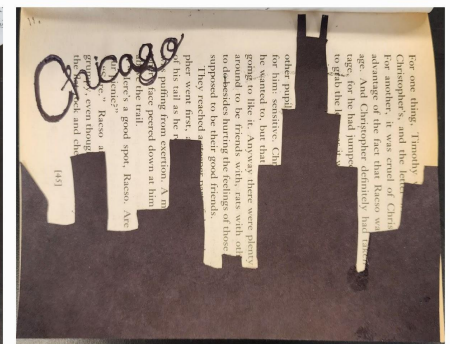 Chicago
For one thing, Timothy
Christopher's, and the letter
For another, it was cruel of Chris
advantage of the fact that Racso wa
age. And Christopher definitely had taken
tage, for he had jumped
to grab the
other pupil
for him: sensitive. Chr
he wanted to, but that
going to like it. Anyway there were plenty
around to be friends with, rats with oth
to do besides hurting the feelings of those
supposed to be their good friends.
They reached a
pher went first, a
of his tail as he r
puffing from exertion. A m
face peered down at him
the trail
ere's a good spot, Racso. Are
nic?"
re." Racso a
grumpy, even thoug
the ck and che
[45]